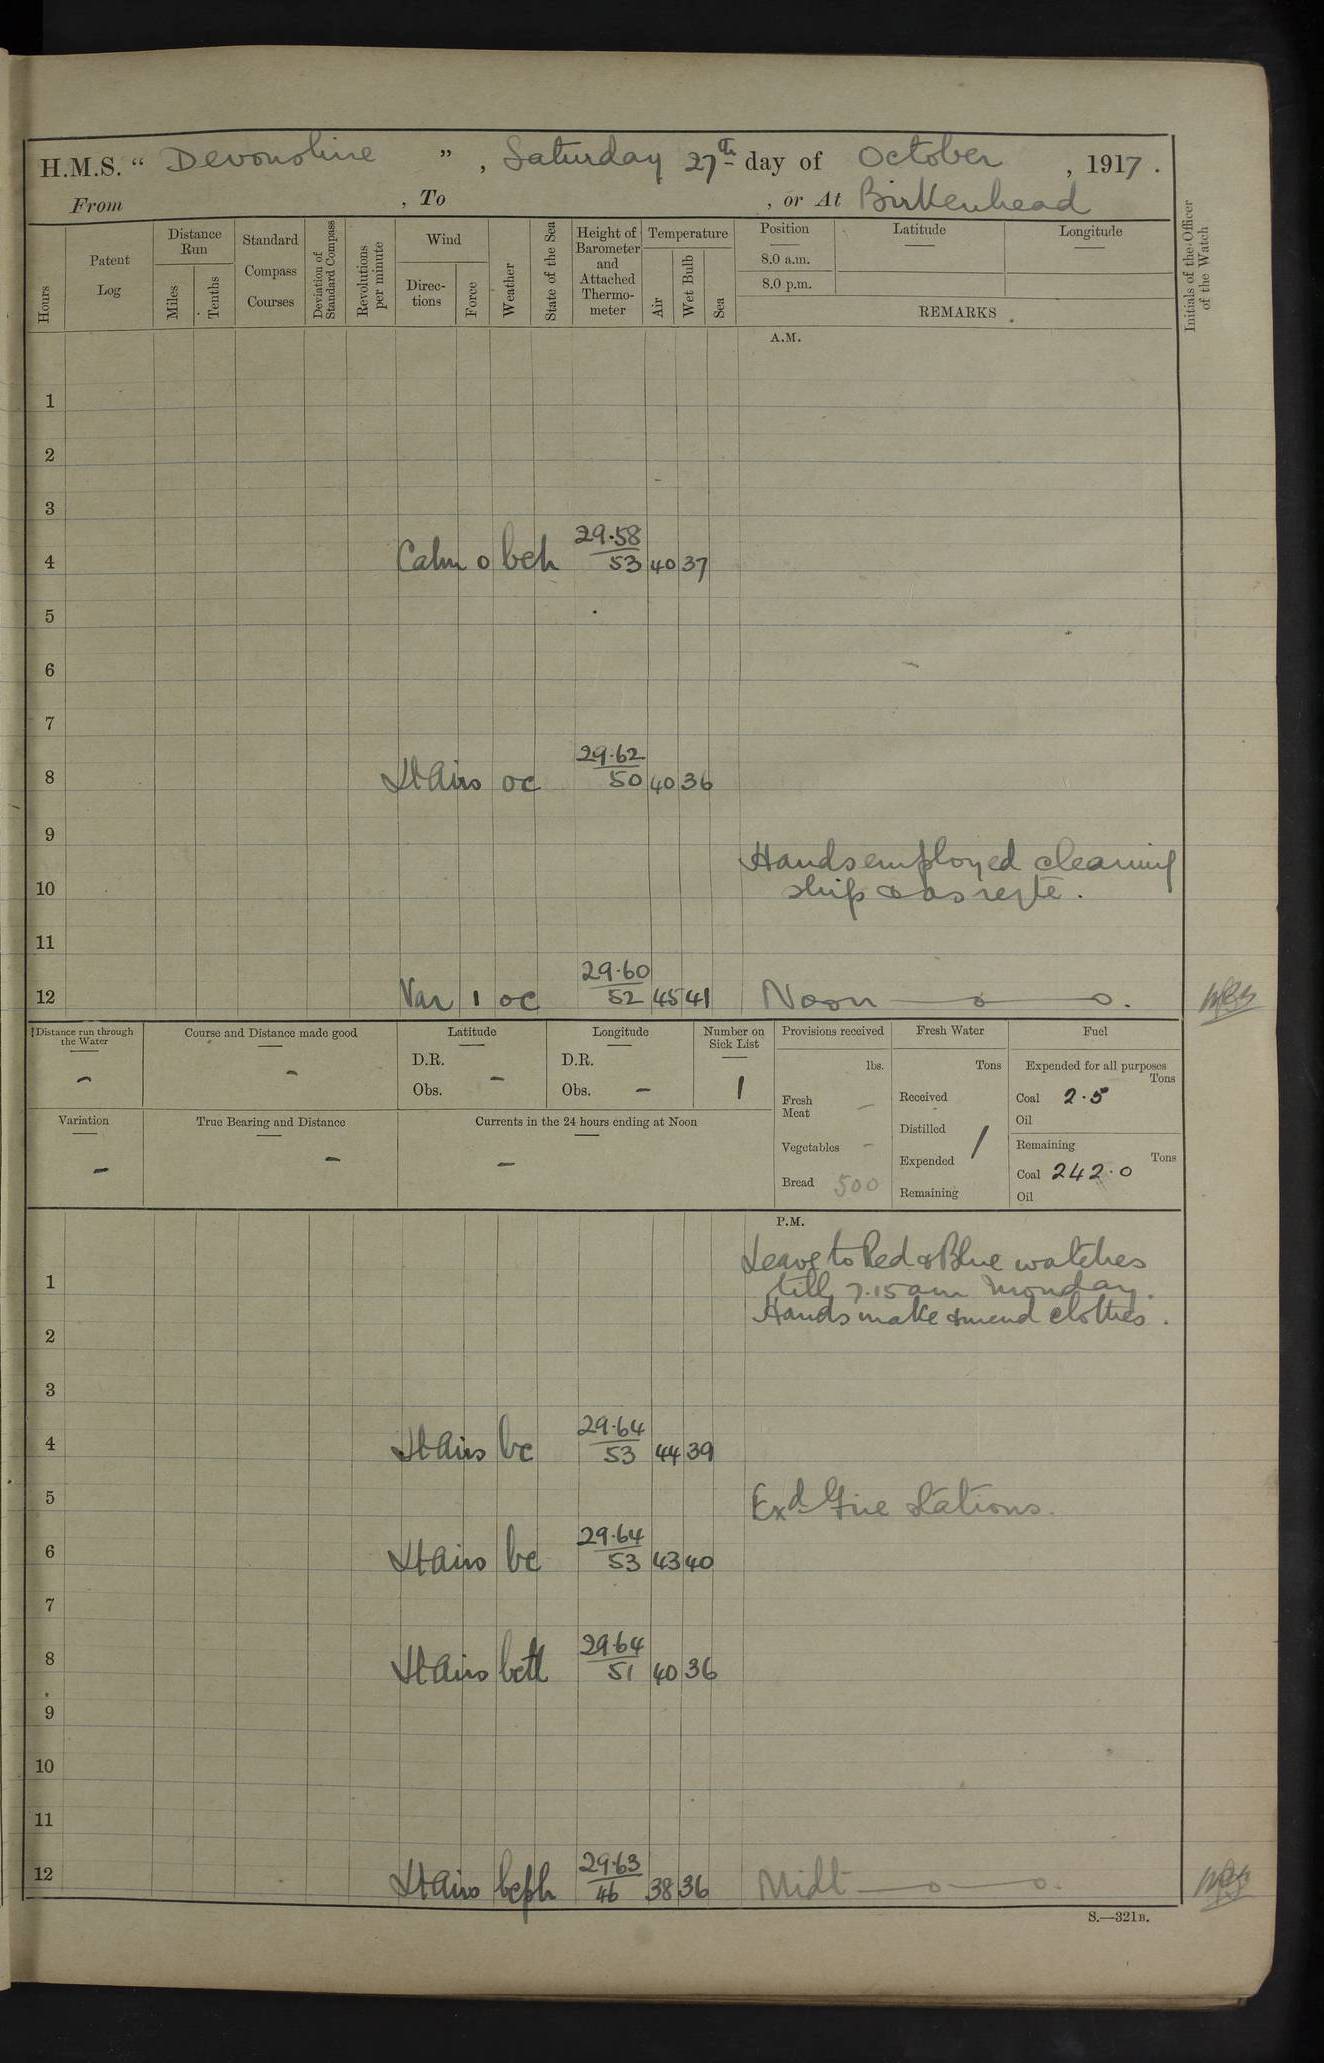 H.M.S. “ Devonshire ” , Saturday 27th day of October , 1917 .
From , To , or At Birkenhead
Hours
Patent Log
Distance Run
Miles
Tenths
Standard Compass Courses
Deviation of Standard Compass
Revolutions per minute
Wind
Direc- tions
Force
Weather
State of the Sea
Height of Barometer and Attached Thermo- meter
Temperature
Air
Wet Bulb
Sea
Position
8.0 a.m.
8.0 p.m.
Latitude
Longitude
REMARKS
Initials of the Officer of the Watch
A.M.
1
2
3
29.58
4 Calm 0 bch 53 40 37
5
6
7
29.62
8 Lt Airs oc 50 40 36
9
Hands employed cleaning
10 ship & as reqte.
11
29.60
12 Var 1 oc 52 45 41 Noon
Distance run through the Water
-
Course and Distance made good
-
Latitude
D.R.
Obs. -
Longitude
D.R.
Obs. -
Number on Sick List
1
Variation
-
True Bearing and Distance
-
Currents in the 24 hours ending at Noon
-
Provisions received
lbs.
Fresh Meat -
Vegetables -
Bread 500
Fresh Water
Tons
Received
Distilled
Expended
Remaining
Fuel
Expended for all purposes
Tons
Coal 2.5
Oil
Remaining
Tons
Coal 242.0
Oil
P.M.
Leave to Red & Blue watches
1 till 7.15 am Monday.
Hands make & mend clothes.
2
3
29.64
4 Lt Airs bc 53 44 39
5 Exd Fire Stations.
29.64
6 Lt Airs bc 53 43 40
7
29.64
8 Lt Airs 51 40 36
9
10
11
29.63
12 Lt Airs 46 38 36 Midt
S.—321B.